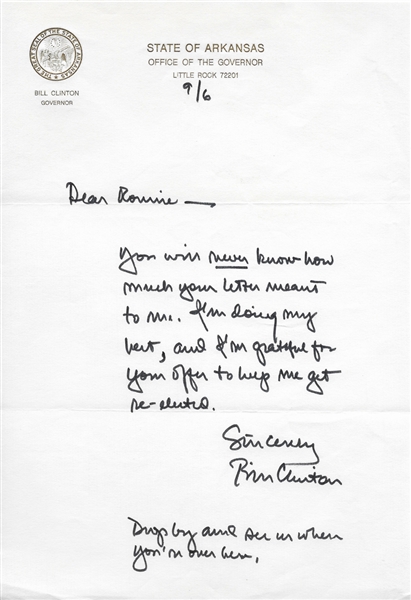 THE GREAT SEAL OF THE STATE OF ARKANSAS
BILL CLINTON
GOVERNOR
STATE OF ARKANSAS
OFFICE OF THE GOVERNOR
LITTLE ROCK 72201
9/6
Dear Ronnie —
You will never know how
much your letter meant
to me. I'm doing my
best, and I'm grateful for
your offer to help me get
re-elected.
Sincerely
Bill Clinton
Drop by and see us when
you're over here.